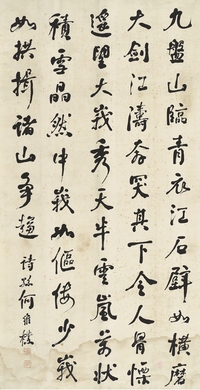 九盤山臨青衣江石壁如橫磨
大劍江濤奔突其下令人骨慄
遙望大峩秀天半雲嵐萬狀
積雪晶然中峩如傴僂少峩
如拱揖諸山爭趨 詩孫何維樸